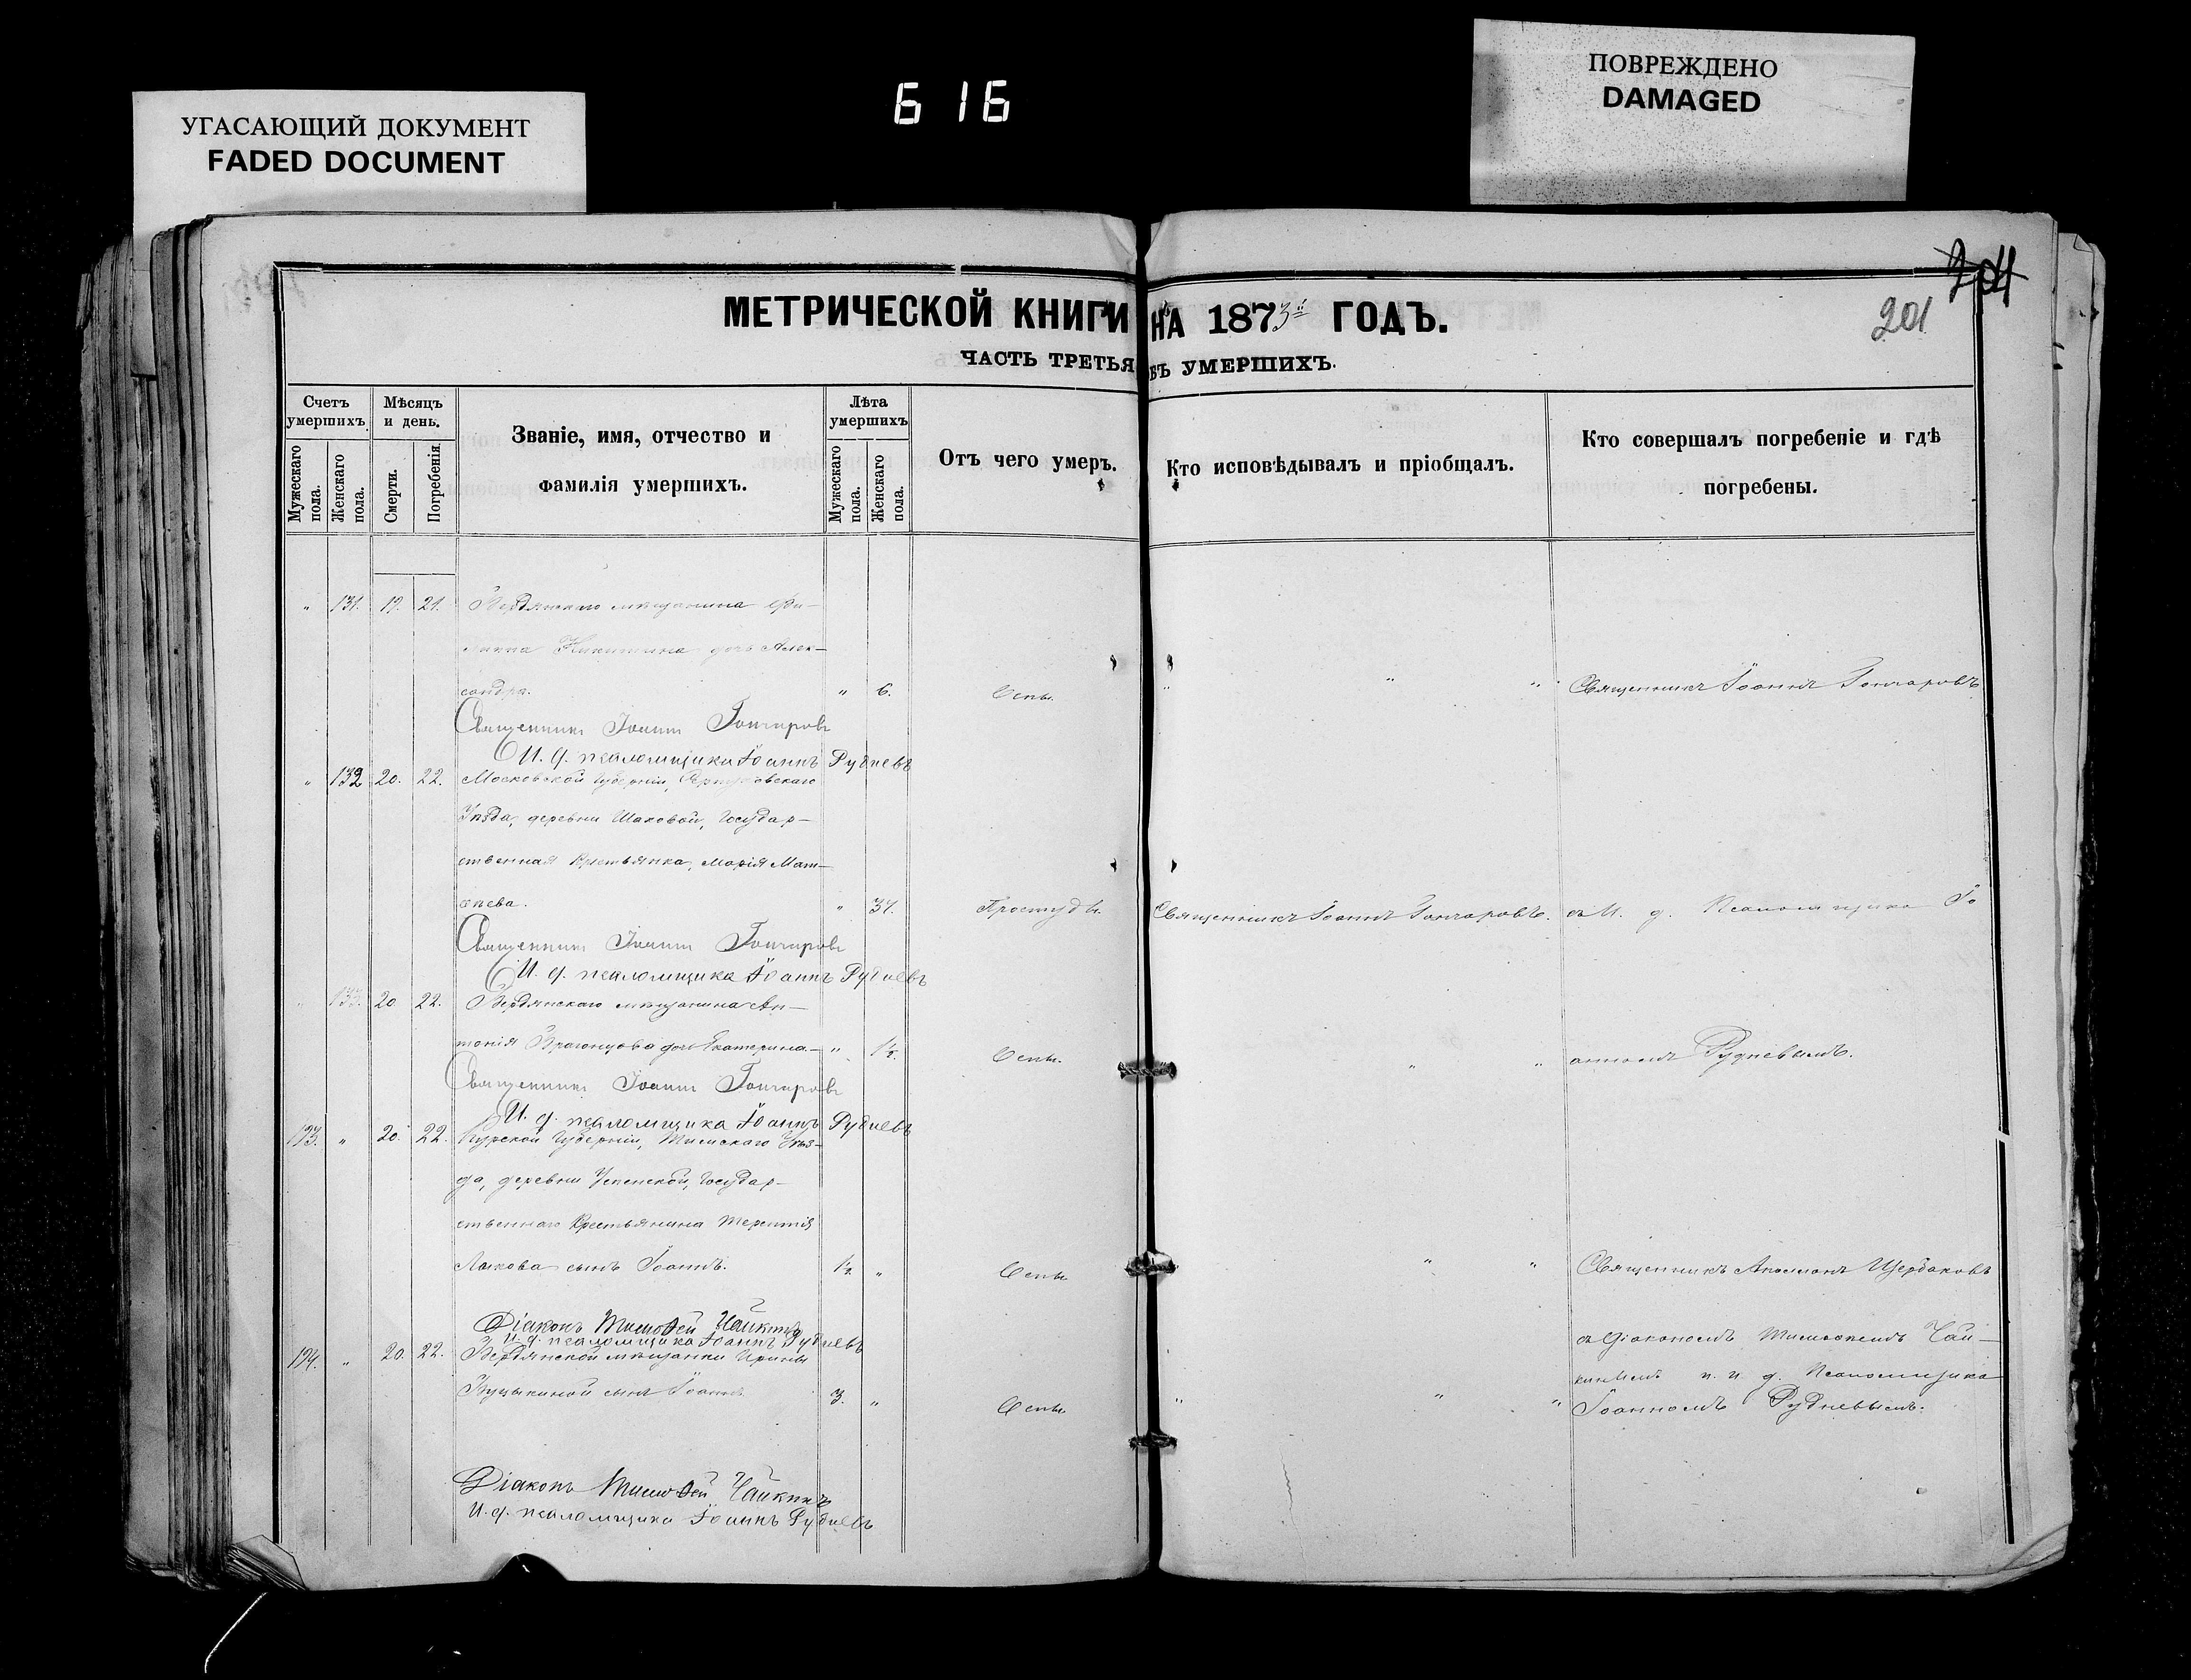 УГАСАЮЩИЙ ДОКУМЕНТ
FADED DOCUMENT
616
ПОВРЕЖДЕНО
DAMAGED
204
201
МЕТРИЧЕСКОЙ КНИГИ НА 1873й ГОДЪ.
ЧАСТЬ ТРЕТЬЯ УМЕРШИХЪ.
Счетъ умершихъ.
Мужескаго пола.
Женскаго пола.
Мѣсяцъ и день.
Смерти.
Погребенія.
Званіе, имя, отчество и фамилія умершихъ.
Лѣта умершихъ
Мужескаго пола.
Женскаго пола.
Отъ чего умеръ.
Кто исповѣдывалъ и пріобщалъ.
Кто совершалъ погребеніе и гдѣ погребены.
" 131. 19. 21. Бердянскаго мѣщанина Фи-
липпа Никитина дочь Алек-
сандра. " 6. Оспы. " " " Священникъ Іоаннъ Гончаровъ
Священникъ Іоаннъ Гончаровъ
И. д. псаломщика Іоаннъ Рудневъ
" 132 20. 22. Московской Губерніи, Серпуховскаго
Уѣзда, деревни Шаховой, Государ-
ственная Крестьянка, Марія Мат-
ѳѣева. " 37. Простуды. Священникъ Іоаннъ Гончаровъ. съ И. д. Псаломщика Іо
Священникъ Іоаннъ Гончаровъ
И. д. псаломщика Іоаннъ Рудневъ
" 133. 20 22. Бердянскаго мѣщанина Ан-
тонія дочь Екатерина. " 1½. Оспы. " " анномъ Рудневымъ.
Священникъ Іоаннъ Гончаровъ
И. д. псаломщика Іоаннъ Рудневъ
193. " 20. 22. Курской Губерніи, Тимскаго Уѣз-
да, деревни Успенской, Государ-
ственнаго Крестьянина Терентія
Лыкова сынъ Іоаннъ. 1½. " Оспы " " Священникъ Щербаковъ
Діаконъ Тимоѳей Чайкинъ
И. д. псаломщика Іоаннъ Рудневъ
съ Діакономъ Тимоѳеемъ Чай-
194. " 20. 22. Бердянской мѣщанки Ирины
кинымъ и. д. Псаломщика
сынъ Іоаннъ. 3. " Оспы " " " Іоанномъ Рудневымъ.
Діаконъ Тимоѳей Чайкинъ
И. д. псаломщика Іоаннъ Рудневъ